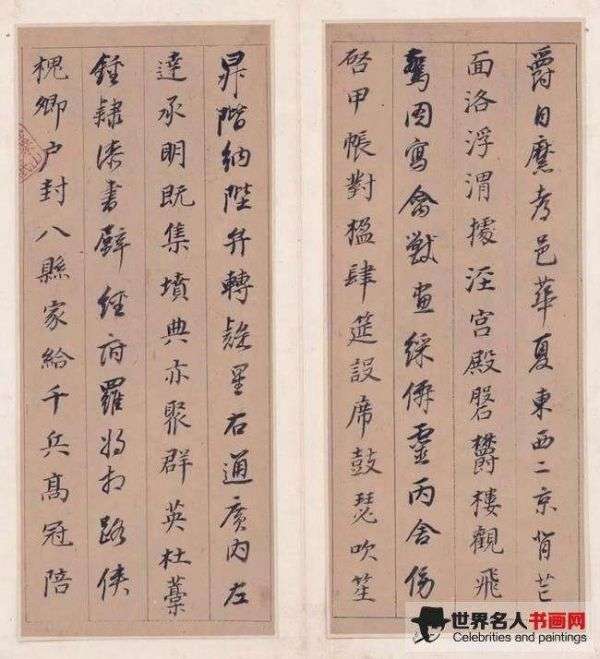 爵自縻都邑華夏東西二京背芒
面洛浮渭據涇宮殿磐欝樓觀飛
驚圖寫禽獸畫綵僊靈丙舍傍
啓甲帳對楹肆筵設席鼓瑟吹笙
昇階納陛弁轉疑星右通廣內左
達承明既集墳典亦聚群英杜藁
鍾隸漆書壁經府羅將相路俠
槐卿戶封八縣家給千兵高冠陪
世界名人书画网
Celebrities and paintings